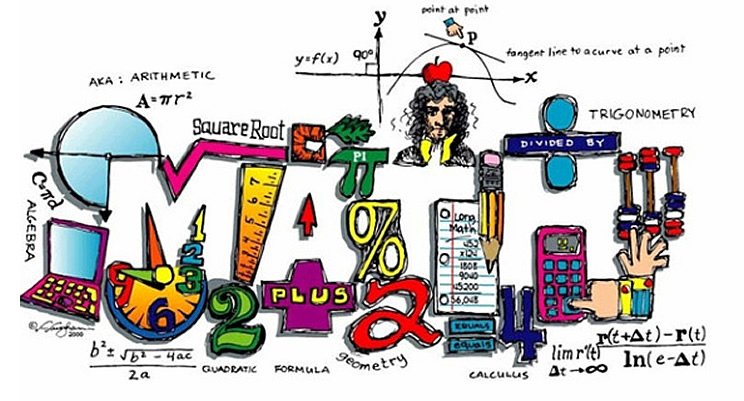 point at point
y
P
y=f(x)
90°
tangent line to a curve at a point
x
AKA: ARITHMETIC
A=πr²
Square Root
PI
TRIGONOMETRY
DIVIDED BY
C=πd
ALGEBRA
MATH
7
6
5
4
3
2
%
Long
Math
452
x124
1808
9040
45200
56,048
1
2
3
6
9
PLUS
2
2
EQUALS
equals
4
2000
b² ± √b² - 4ac
2a
QUADRATIC FORMULA
geometry
CALCULUS
lim r'(t)
Δt→∞
r(t+Δt)-r(t)
ln(e-Δt)